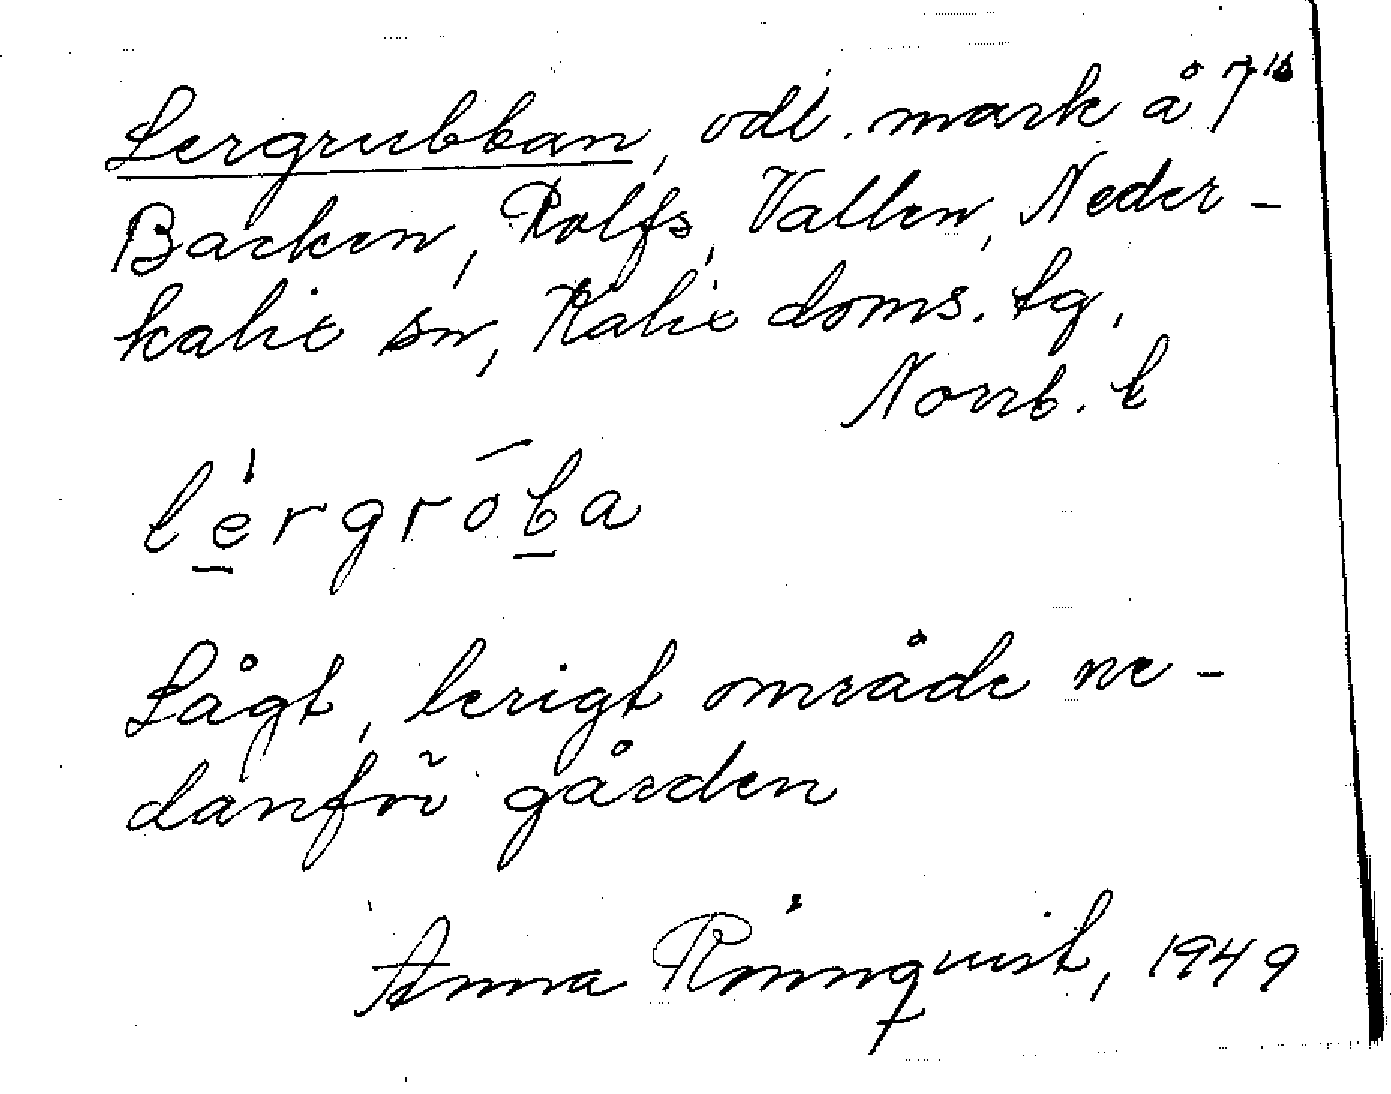 Lergrubban, odl. mark å 7¹⁶
Backen, Rolfs, Vallen, Neder-
kalix sn, Kalix doms. tg,
Norrb. l
lérgrōba
Lågt, lerigt område ne-
danför gården
Anna Rönnquist, 1949